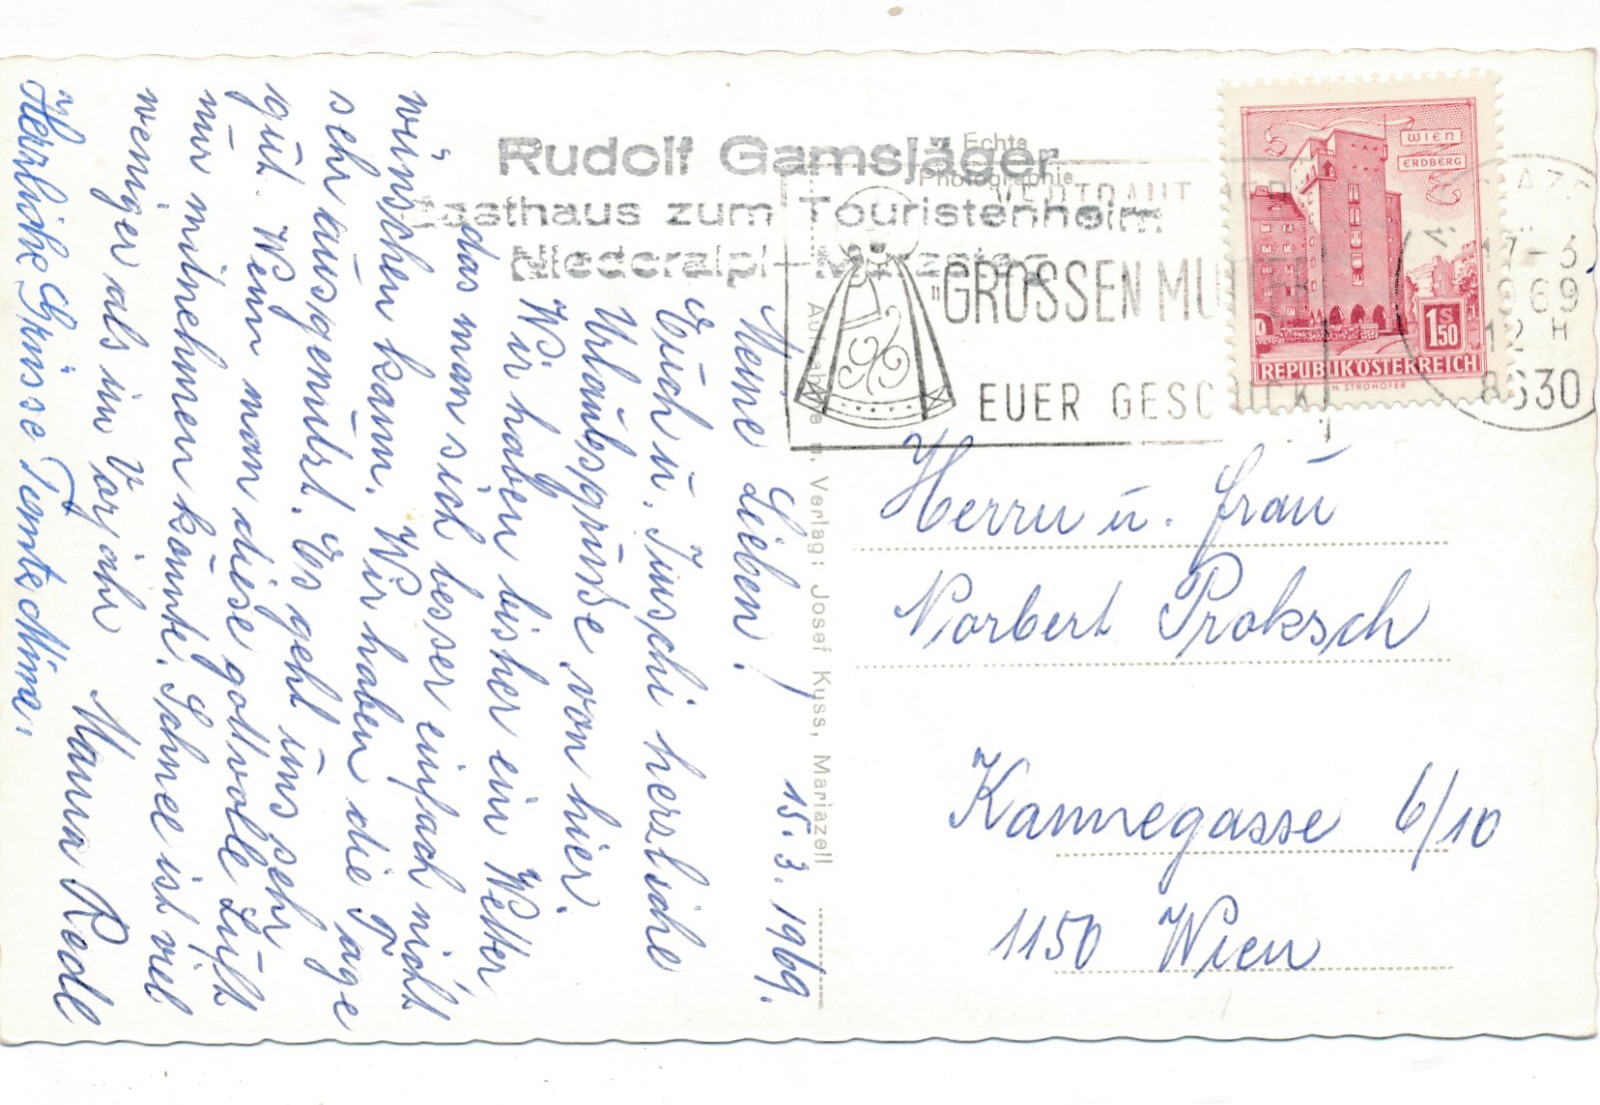 Rudolf Gamsjäger
Gasthaus zum Touristenheim
Niederalpl-Mürzsteg
Echte
Photographie
"GROSSEN MUTTER
EUER GESCHICK
17-3
1969
12 H
8630
WIEN
ERDBERG
1S50
REPUBLIK ÖSTERREICH
H. STROHOFER
15. 3. 1969.
Meine Lieben!
Euch u. Fuschi herzliche
Urlaubsgrüße von hier.
Wir haben bisher ein Wetter,
das man sich besser einfach nicht
wünschen kann. Wir haben die Tage
sehr ausgenützt. Es geht uns sehr
gut. Wenn man diese gottvolle Luft
nur mitnehmen könnte. Schnee ist viel
weniger als im Vorjahr
Mama Redl
Herzliche Grüsse Tante Mima.
Aufnahme u. Verlag: Josef Kuss, Mariazell
Herrn u. Frau
Norbert Proksch
Kannegasse 6/10
1150 Wien